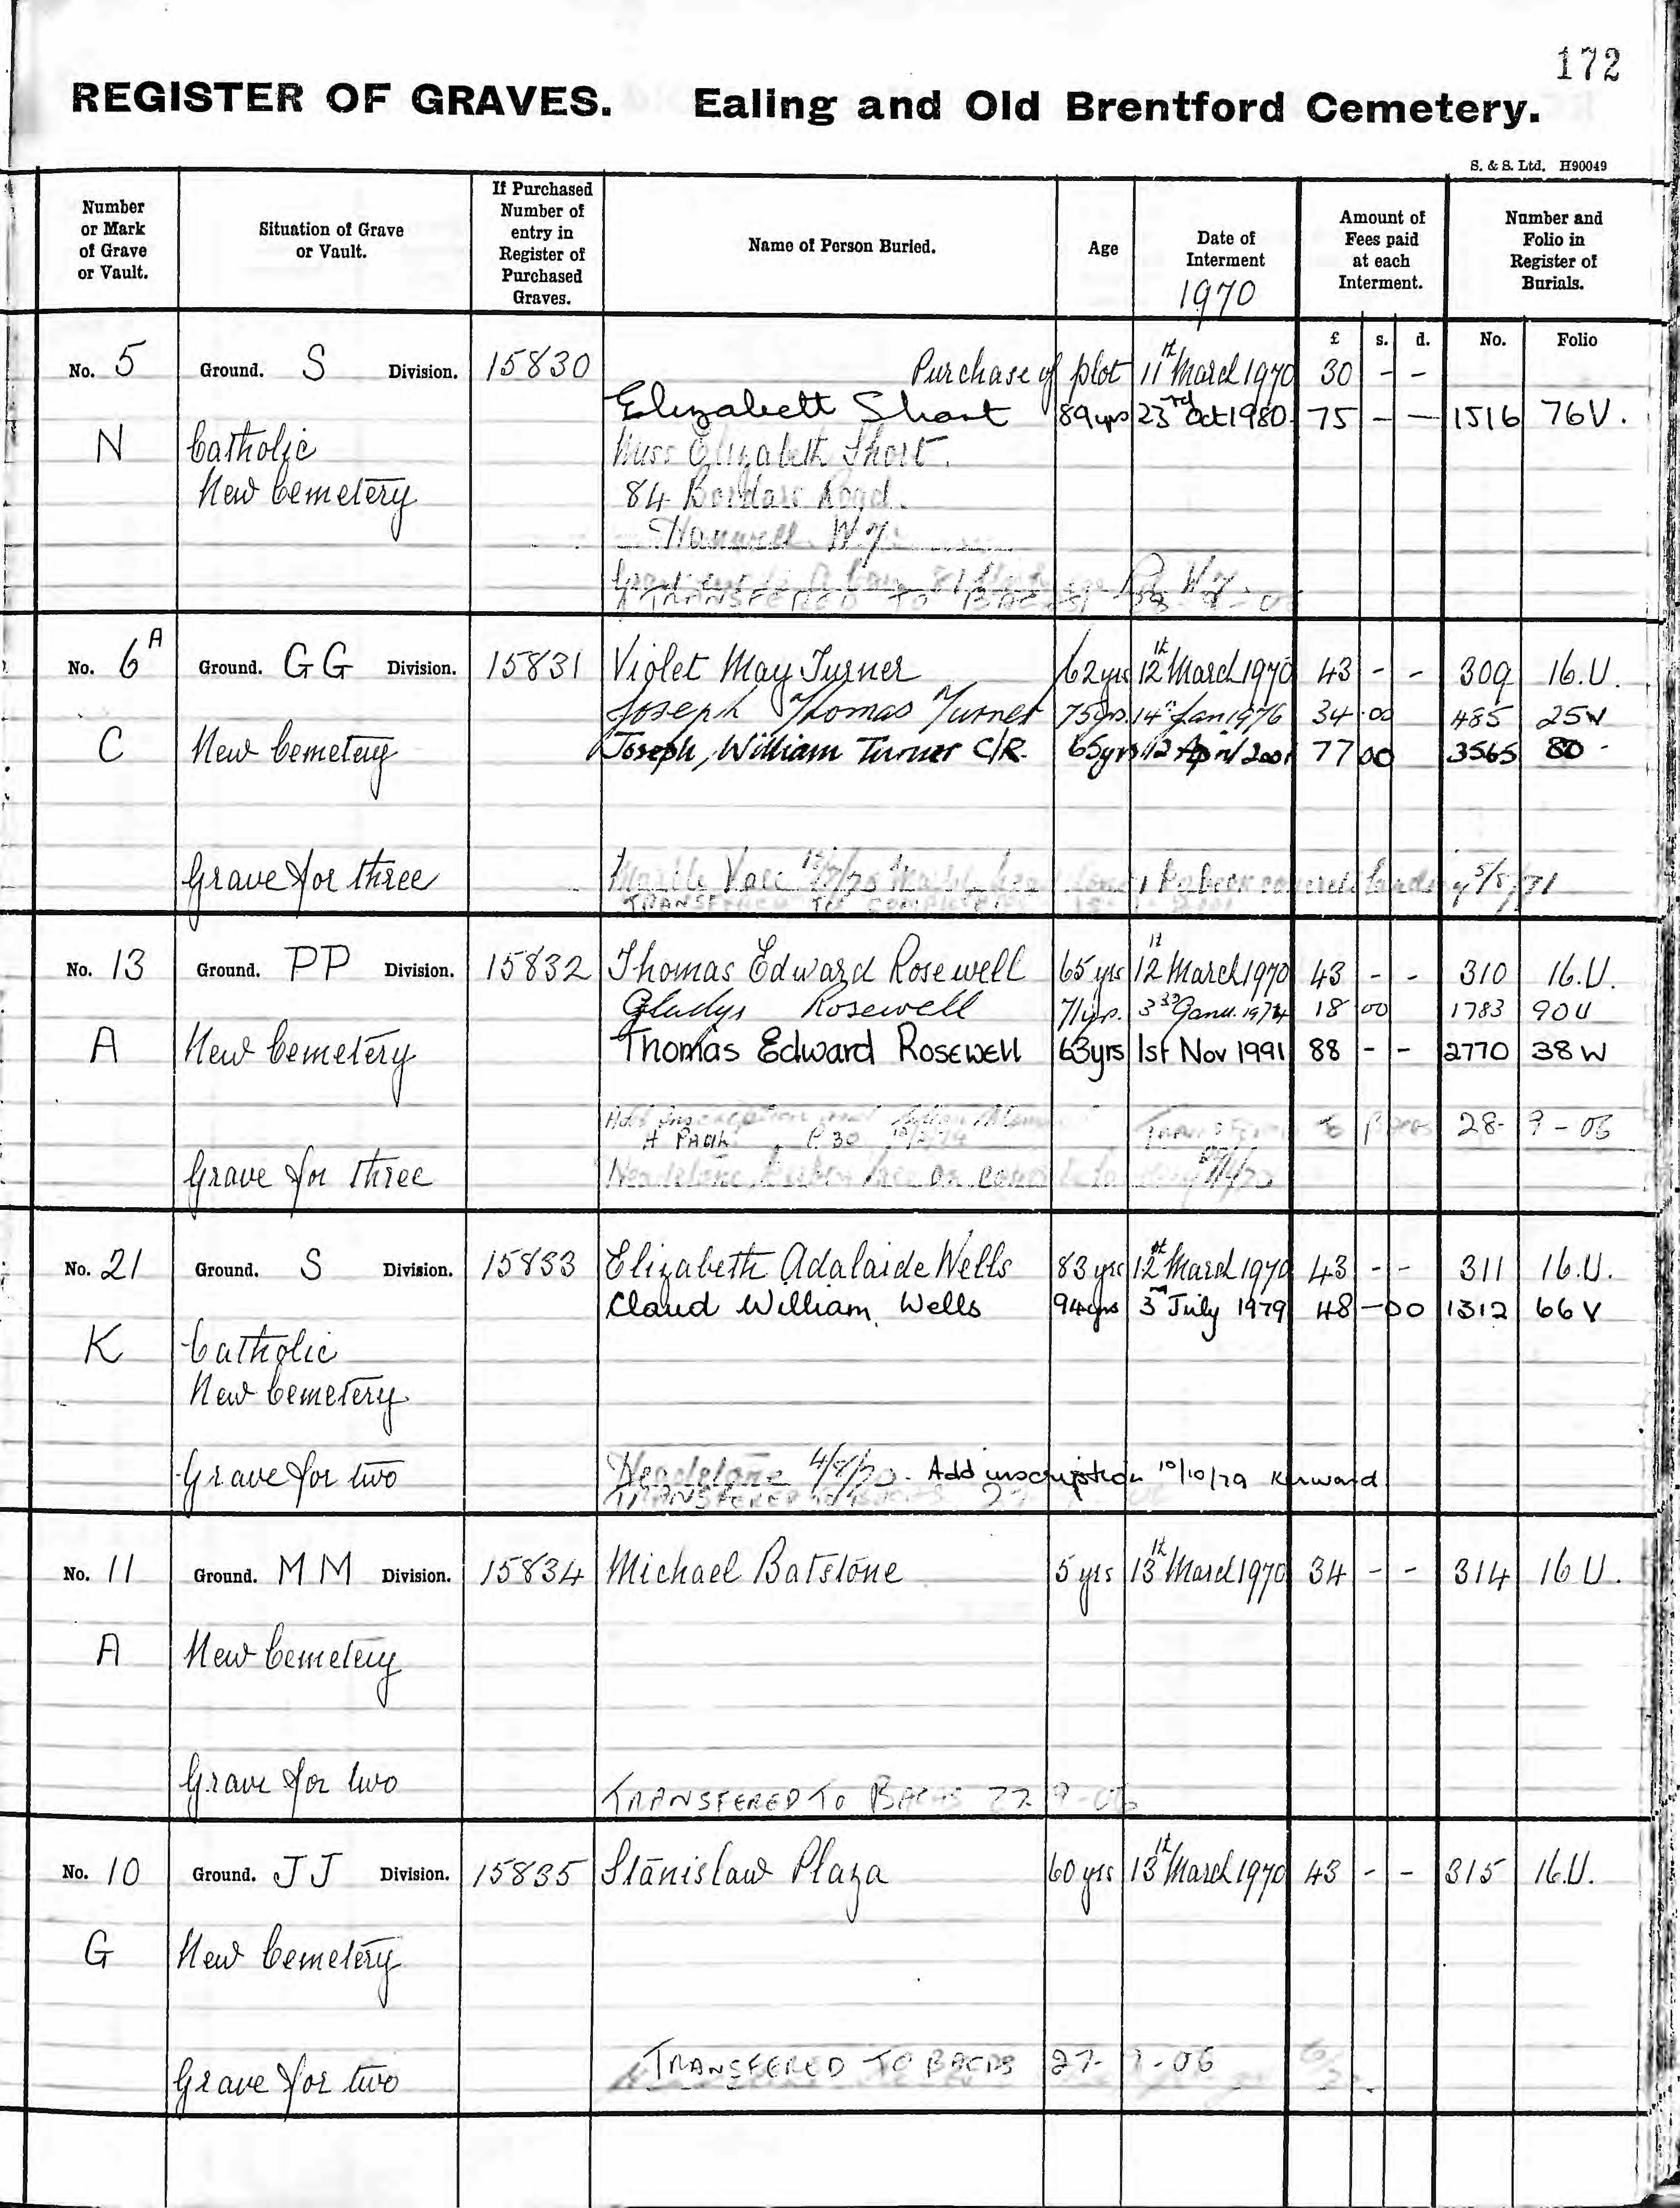 172
REGISTER OF GRAVES. Ealing and Old Brentford Cemetery.
S. & S. Ltd. H90049
Number or Mark of Grave or Vault.
Situation of Grave or Vault.
If Purchased Number of entry in Register of Purchased Graves.
Name of Person Buried.
Age
Date of Interment
1970
Amount of Fees paid at each Interment.
Number and Folio in Register of Burials.
£ s. d. No. Folio
No. 5 Ground. S Division. 15830 Purchase of plot 11th March 1970 30 - -
Elizabeth Short 89yrs 23rd Oct 1980 75 - - 1516 76V.
N Catholic Miss Elizabeth Short.
New Cemetery 84 Road.
Hanwell W.7.
TRANSFERED TO
No. 6A Ground. GG Division. 15831 Violet May Turner 62yrs 12th March 1970 43 - - 309 16.U.
Joseph Thomas Turner 75yrs. 14th Jan 1976 34 00 485 25W
C New Cemetery Joseph, William Turner C/R. 65yrs 12 April 2001 77 00 3565 80
Grave for three Marble Vase 5/8/71
TRANSFERED TO
No. 13 Ground. PP Division. 15832 Thomas Edward Rosewell 65 yrs 12th March 1970 43 - - 310 16.U.
Gladys Rosewell 71yrs. 3rd Janu. 1974 18 00 1783 90U
A New Cemetery Thomas Edward Rosewell 63yrs 1st Nov 1991 88 - - 2770 38W
Add inscription
28- 9 - 06
Grave for three Headstone
No. 21 Ground. S Division. 15833 Elizabeth Adalaide Wells 83 yrs 12th March 1970 43 - - 311 16.U.
Claud William Wells 94yrs 3rd July 1979 48 - 00 1312 66V
K Catholic
New Cemetery
Grave for two Headstone 4/8/70. Add inscription 10/10/79 Kerward
TRANSFERED TO BACAS
No. 11 Ground. MM Division. 15834 Michael Batstone 5 yrs 13th March 1970 34 - - 314 16 U.
A New Cemetery
Grave for two
TRANSFERED TO BACAS 27 9-06
No. 10 Ground. JJ Division. 15835 Stanislaw Plaza 60 yrs 13th March 1970 43 - - 315 16.U.
G New Cemetery
TRANSFERED TO BACAS 27- 9 - 06
Grave for two